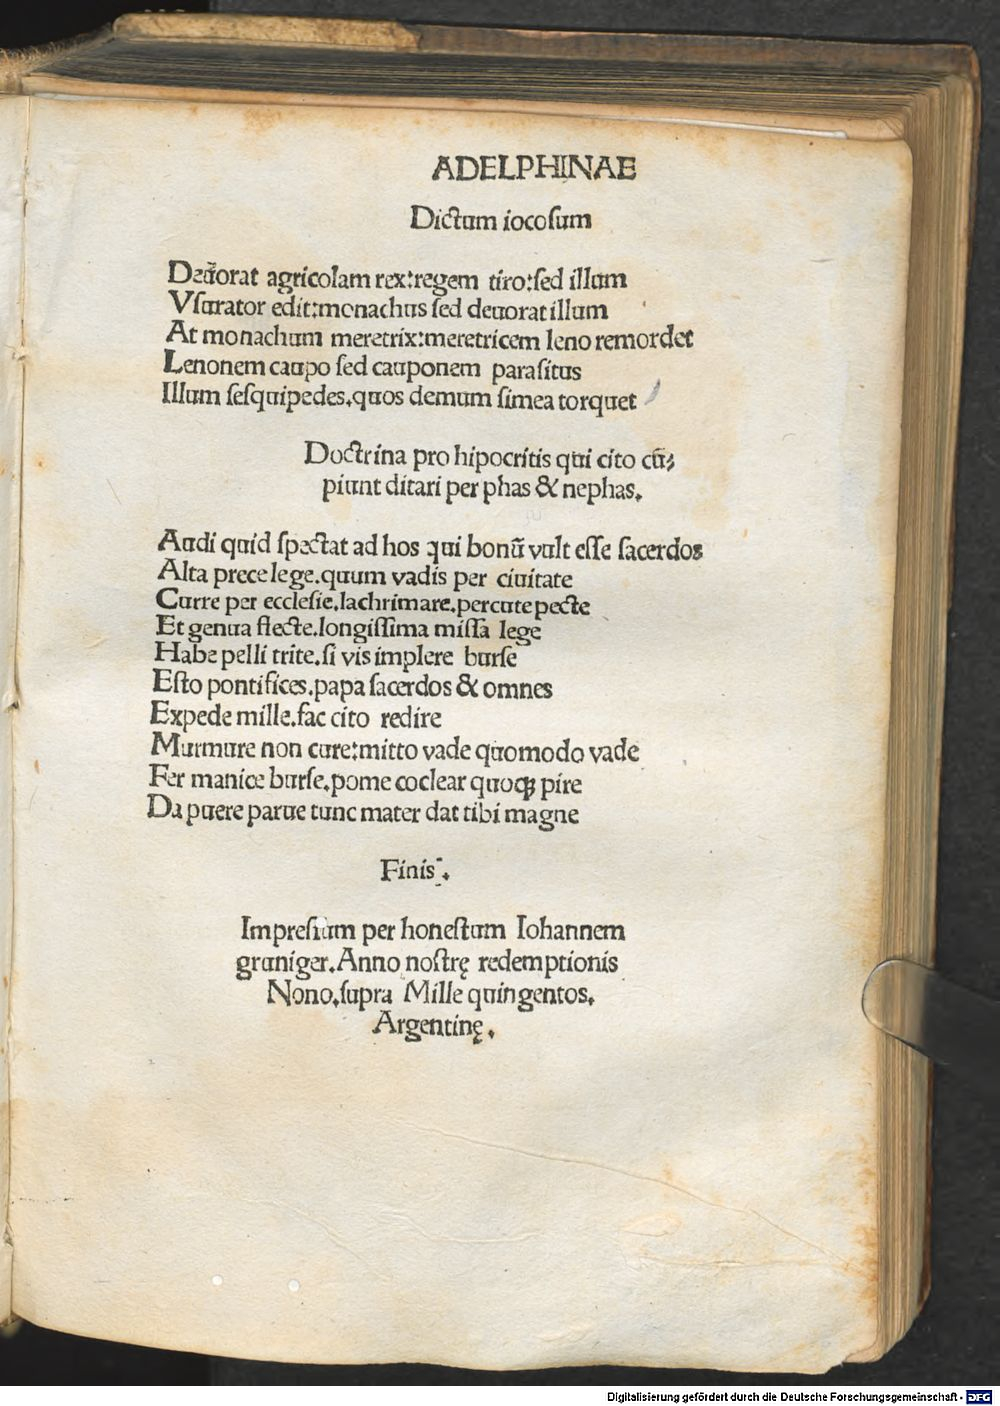 ADELPHINAE
Dictum iocoſum
Deūorat agricolam rex:regem tiro:ſed illum
Vſurator edit:monachus ſed deuorat illum
At monachum meretrix:meretricem leno remordet
Lenonem caupo ſed cauponem paraſitus
Illum ſeſquipedes.quos demum ſimea torquet
Doctrina pro hipocritis qui cito cū⸗
piunt ditari per phas & nephas.
Audi quid ſpectat ad hos qui bonū vult eſſe ſacerdos
Alta prece lege.quum vadis per ciuitate
Curre per eccleſie.lachrimare.percute pecte
Et genua flecte.longiſſima miſſa lege
Habe pelli trite.ſi vis implere burſe
Eſto pontifices.papa ſacerdos & omnes
Expede mille.fac cito redire
Murmure non cure:mitto vade quomodo vade
Fer manice burſe.pome coclear quoqꝫ pire
Da puere parue tunc mater dat tibi magne
Finis.
Impreſſum per honeſtum Iohannem
gruniger.Anno noſtrę redemptionis
Nono.ſupra Mille quingentos.
Argentinę.
Digitalisierung gefördert durch die Deutsche Forschungsgemeinschaft - DFG